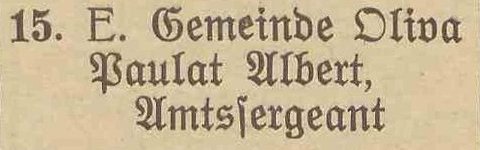 15. E. Gemeinde Oliva
Paulat Albert,
Amtsſergeant